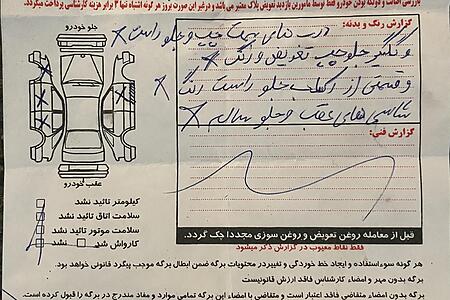 بازرسی اصالت و خودرو فقط توسط مامورین بازدید تعویض پلاک معتبر می باشد و در غیر این صورت هر گونه اشتباه تنها 2 برابر هزینه کارشناسی پرداخت میگردد.
گزارش رنگ و بدنه:
جلو خودرو
درب های سمت چپ و جلو راست
و گلگیر جلو چپ تعویض و رنگ
و قسمتی از جلو راست رنگ
شاسی های عقب و جلو سالم
گزارش فنی:
عقب خودرو
کیلومتر تائید نشد
سلامت اتاق تائید نشد
سلامت موتور تائید نشد
کارواش شد نشد
قبل از معامله روغن تعویض و روغن سوزی مجددا چک گردد.
فقط نقاط معیوب در گزارش ذکر میشود
هر گونه سوءاستفاده و ایجاد خط خوردگی و تغییر در محتویات برگه ضمن ابطال برگه موجب پیگرد قانونی خواهد بود.
برگه بدون مهر و امضاء کارشناس فاقد ارزش قانونیست
برگه بدون امضاء متقاضی فاقد اعتبار است و متقاضی با امضاء این برگه تمامی موارد و مفاد مندرج در برگه را قبول کرده است.